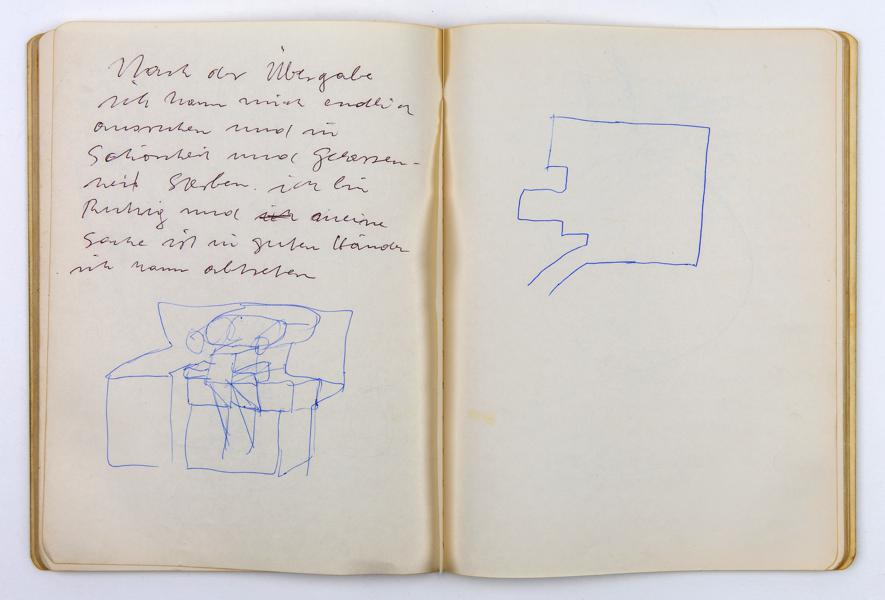 Nach der Übergabe
ich kann mich endlich
ausruhen und in
Schönheit und Gelassen-
heit sterben. ich bin
Ruhig und ich meine
Sache ist in guten Händen
ich kann abtreten